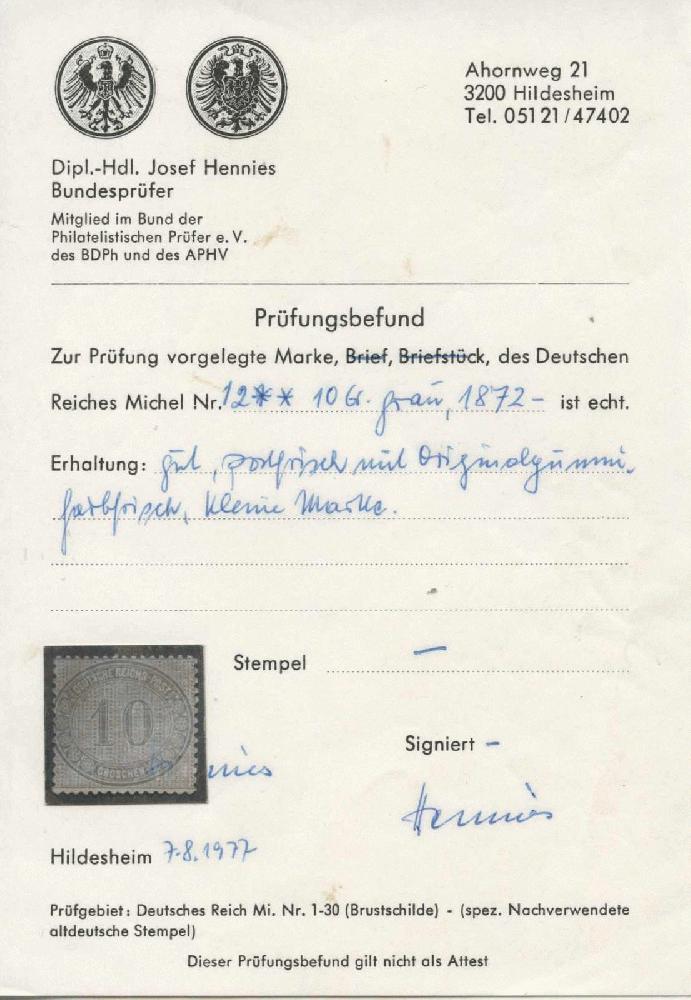 Ahornweg 21
3200 Hildesheim
Tel. 051 21 / 47402
Dipl.-Hdl. Josef Hennies
Bundesprüfer
Mitglied im Bund der
Philatelistischen Prüfer e. V.
des BDPh und des APHV
Prüfungsbefund
Zur Prüfung vorgelegte Marke, Brief, Briefstück, des Deutschen
Reiches Michel Nr. 12** 10 Gr. grau, 1872 – ist echt.
Erhaltung: gut, postfrisch mit Originalgummi,
farbfrisch, kleine Marke.
DEUTSCHE REICHS-POST
10
GROSCHEN
Stempel –
Signiert –
nnies
Hennies
Hildesheim 7.8.1977
Prüfgebiet: Deutsches Reich Mi. Nr. 1-30 (Brustschilde) - (spez. Nachverwendete
altdeutsche Stempel)
Dieser Prüfungsbefund gilt nicht als Attest